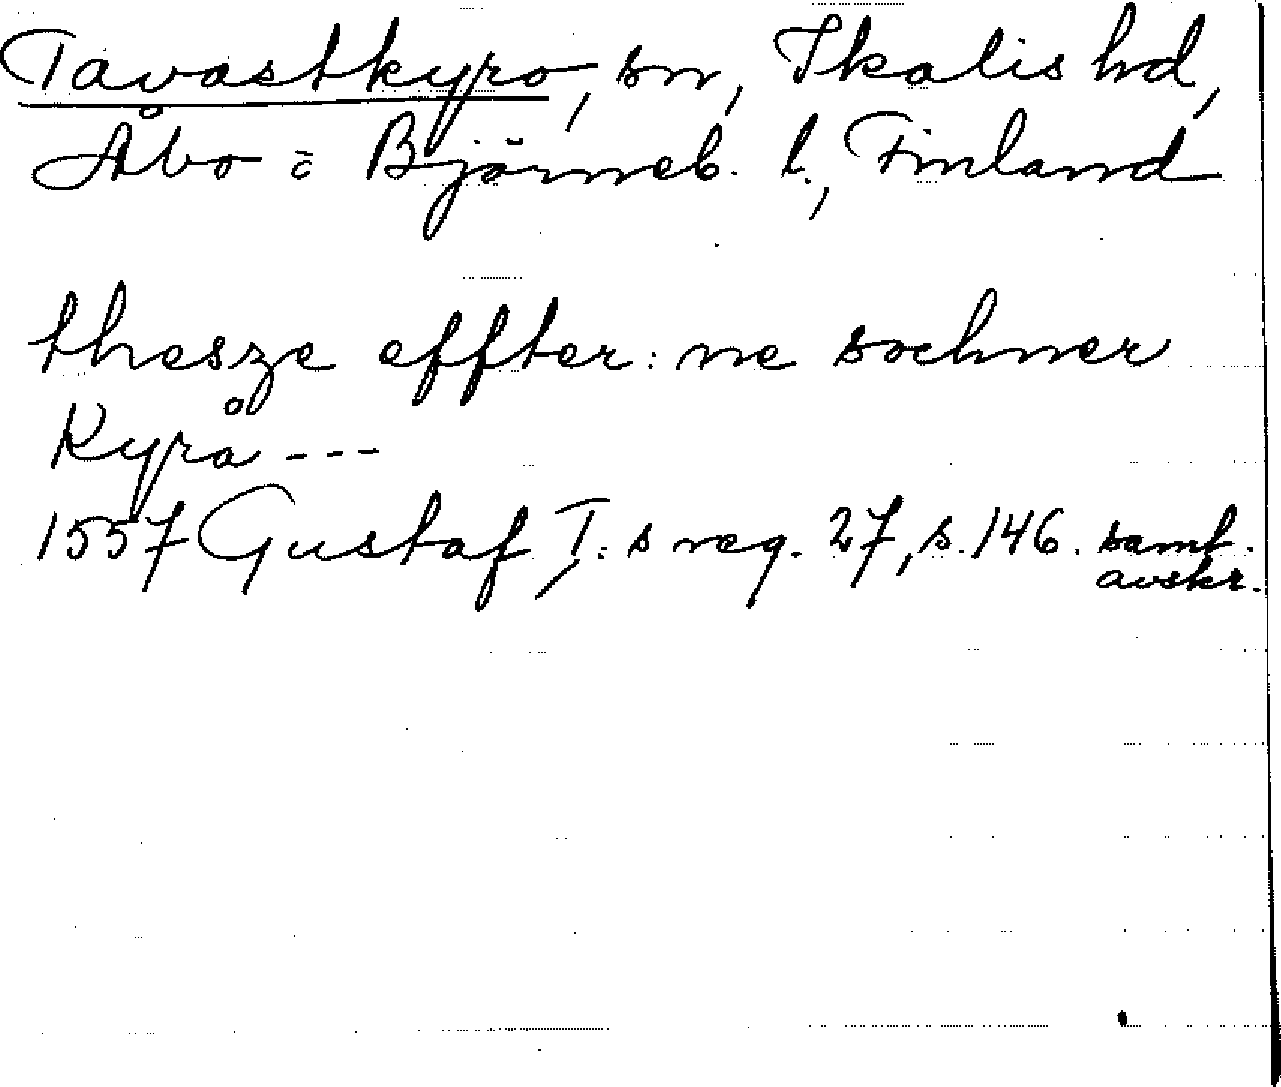 Tavastkyro, sn, Ikalis hd,
Åbo o Björneb. l., Finland
thesze effter: ne sochner
Kyrå ---
1557 Gustaf I:s reg. 27, s. 146. samt.
avskr.